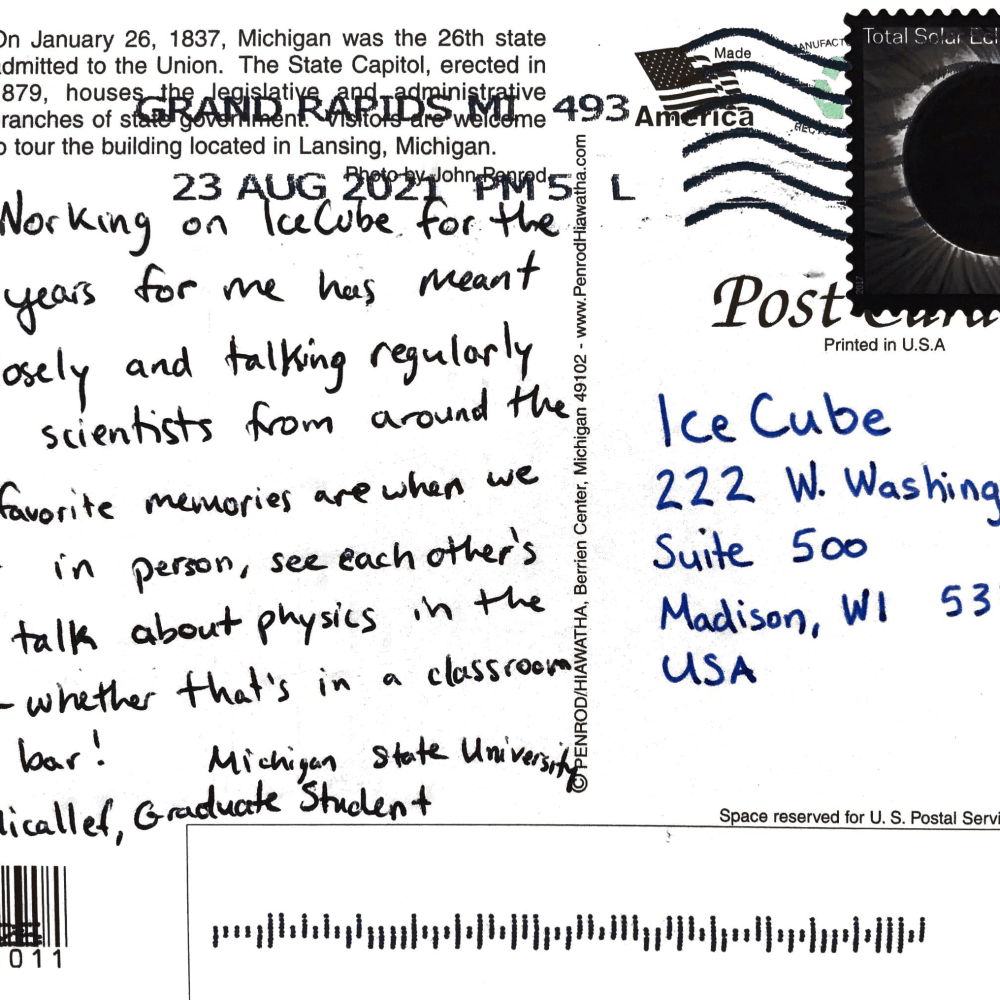 On January 26, 1837, Michigan was the 26th state
admitted to the Union. The State Capitol, erected in
879, houses the legislative and administrative
ranches of state government. Visitors are welcome
o tour the building located in Lansing, Michigan.
Photo by John Penrod
GRAND RAPIDS MI 493
23 AUG 2021 PM 5 L
Made
MANUFACT
America
Total Solar Ecl
2017
Post Card
Printed in U.S.A
Working on IceCube for the
years for me has meant
osely and talking regularly
scientists from around the
favorite memories are when we
in person, see each other's
talk about physics in the
- whether that's in a classroom
bar!
Michigan State University
licallef, Graduate Student
© PENROD/HIAWATHA, Berrien Center, Michigan 49102 - www.PenrodHiawatha.com
Ice Cube
222 W. Washing
Suite 500
Madison, WI 53
USA
Space reserved for U. S. Postal Servi
011